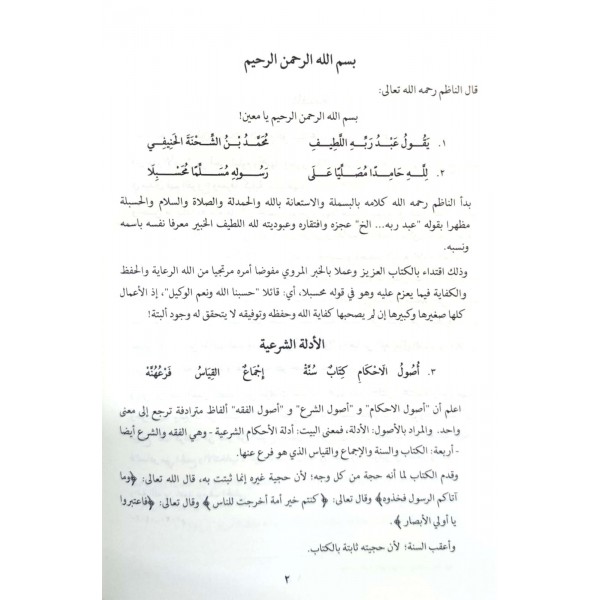 بسم الله الرحمن الرحيم
قال الناظم رحمه الله تعالى:
بسم الله الرحمن الرحيم يا معين!
١. يَقُولُ عَبْدُ رَبِّهِ اللَّطِيفِ مُحَمَّدُ بْنُ الشِّحْنَةِ الحَنِيفِي
٢. لِلَّهِ حَامِدًا مُصَلِّيًا عَلَى رَسُولِهِ مُسَلِّمًا مُحَسْبِلَا
بدأ الناظم رحمه الله كلامه بالبسملة والاستعانة بالله والحمدلة والصلاة والسلام والحسبلة
مظهرا بقوله "عبد ربه... الخ" عجزه وافتقاره وعبوديته لله اللطيف الخبير معرفا نفسه باسمه
ونسبه.
وذلك اقتداء بالكتاب العزيز وعملا بالخبر المروي مفوضا أمره مرتجيا من الله الرعاية والحفظ
والكفاية فيما يعزم عليه وهو في قوله محسبلا، أي: قائلا "حسبنا الله ونعم الوكيل"، إذ الأعمال
كلها صغيرها وكبيرها إن لم يصحبها كفاية الله وحفظه وتوفيقه لا يتحقق له وجود ألبتة!
الأدلة الشرعية
٣. أُصُولُ الاحْكَامِ كِتَابٌ سُنَّةْ إِجْمَاعٌ القِيَاسُ فَرْعُهُنَّهْ
اعلم أن "أصول الاحكام" و "أصول الشرع" و "أصول الفقه" ألفاظ مترادفة ترجع إلى معنى
واحد. والمراد بالأصول: الأدلة، فمعنى البيت: أدلة الأحكام الشرعية - وهي الفقه والشرع أيضا
- أربعة: الكتاب والسنة والإجماع والقياس الذي هو فرع عنها.
وقدم الكتاب لما أنه حجة من كل وجه؛ لأن حجية غيره إنما ثبتت به، قال الله تعالى: ﴿وما
آتاكم الرسول فخذوه﴾ وقال تعالى: ﴿كنتم خير أمة أخرجت للناس﴾ وقال تعالى: ﴿فاعتبروا
يا أولي الأبصار﴾.
وأعقب السنة؛ لأن حجيته ثابتة بالكتاب.
٢